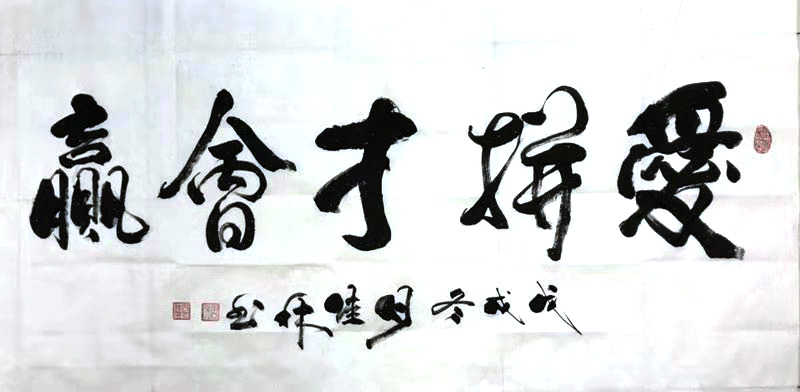 愛拼才會贏
戊戌冬月佳林书